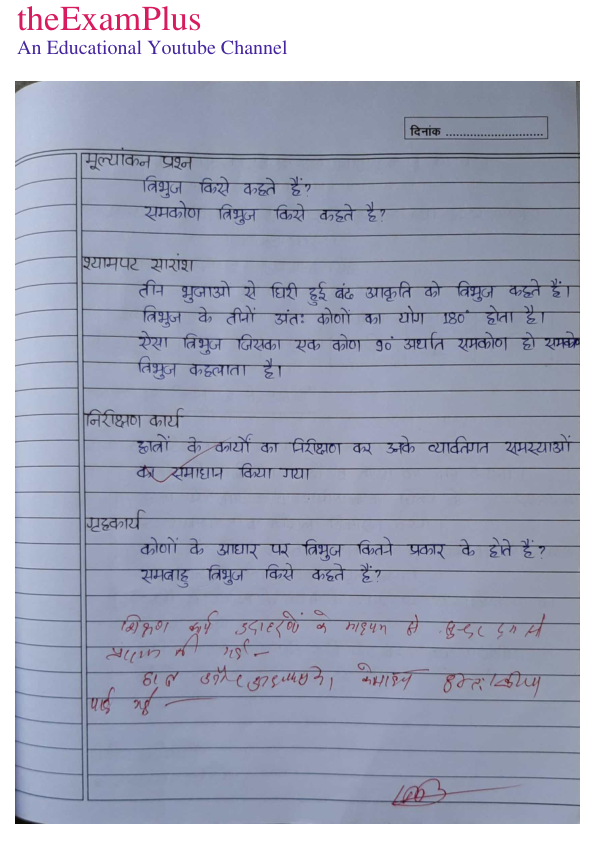 theExamPlus
An Educational Youtube Channel
दिनांक ............................
मूल्यांकन प्रश्न
त्रिभुज किसे कहते हैं?
समकोण त्रिभुज किसे कहते है?
श्यामपट सारांश
तीन भुजाओ से घिरी हुई बंद आकृति को त्रिभुज कहते हैं।
त्रिभुज के तीनों अंतः कोणों का योग 180° होता है।
ऐसा त्रिभुज जिसका एक कोण 90° अर्थात समकोण हो
त्रिभुज कहलाता है।
निरीक्षण कार्य
छात्रों के कार्यों का निरीक्षण कर उनके व्यक्तिगत समस्याओं
का समाधान किया गया
गृहकार्य
कोणों के आधार पर त्रिभुज कितने प्रकार के होते हैं?
समबाहु त्रिभुज किसे कहते हैं?
शिक्षण कार्य उदाहरणों के माध्यम से सुन्दर ढंग से
की गई -
पाई गई -